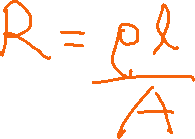 R = ρl/A